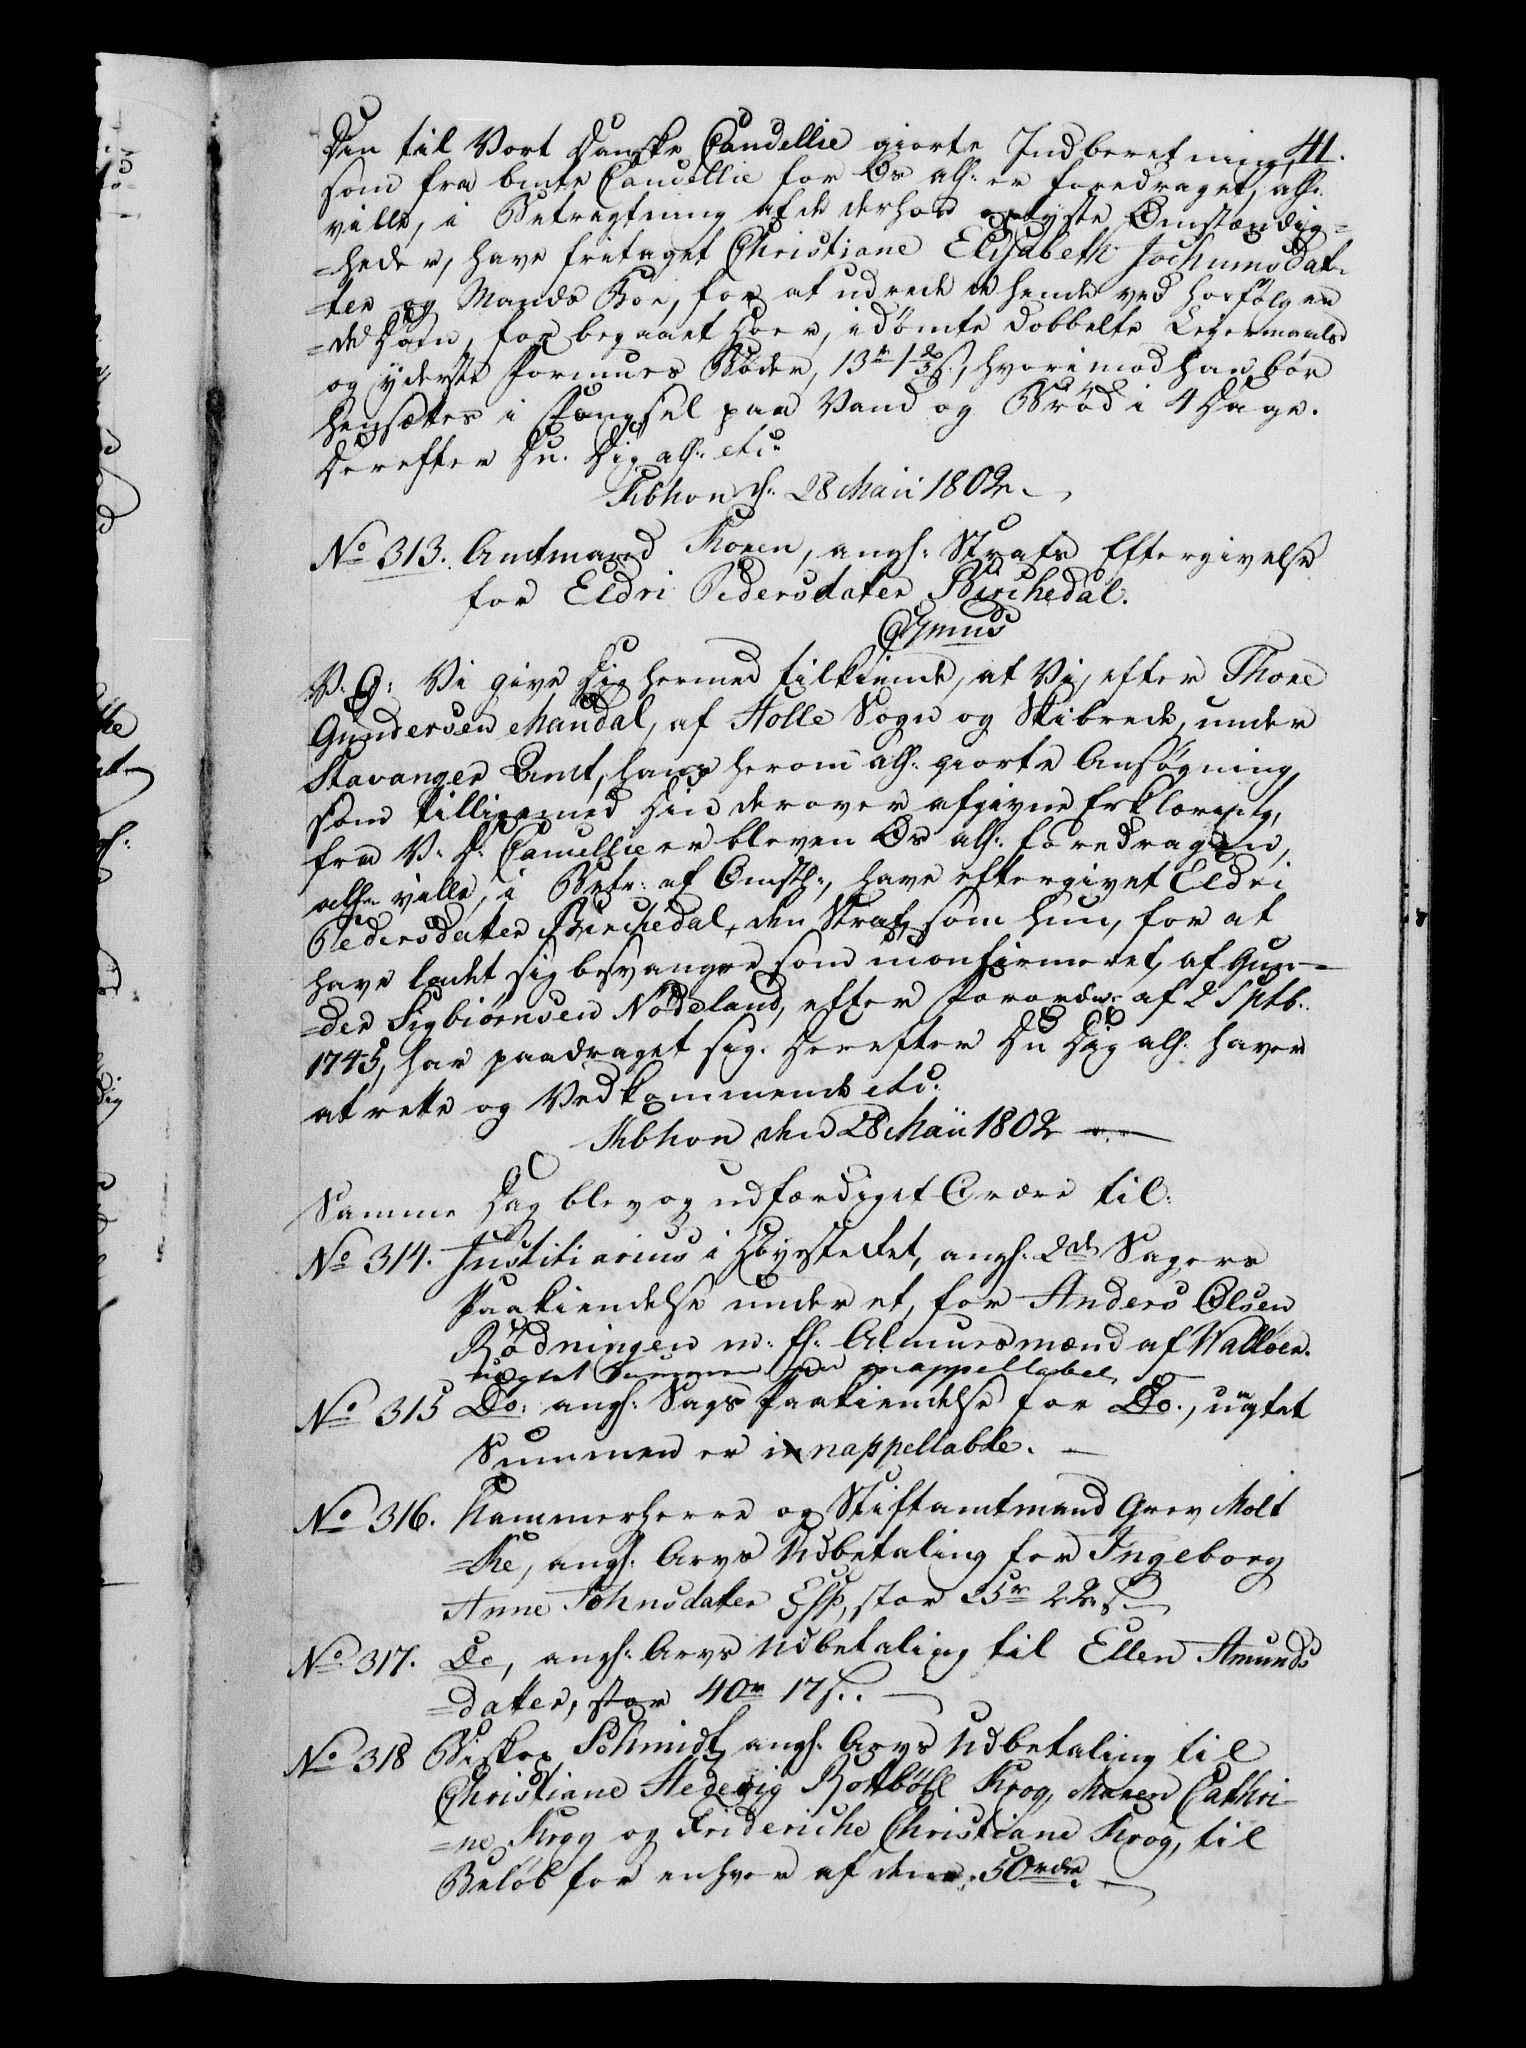 41.
Din til Vort Danske Cancellie giorte Indberetning,
som fra bmte Cancellie for Os allr. er foredraget, allr.
ville, i Betragtning af de derhos oplyste Omstændig-
-heder, have fritaget Christiane Elisabeth Jochumsdat-
-ter og Mands Boe, for at udrede de hende ved Dom, for begaaet Hoer, idømte dobbelte Leiermaals
og yderste Formues Bøder, 13 rd 1 s., hvorimod hun bør
hensættes i Fængsel paa Vand og Brød i 4 Dage.
Derefter Du Dig allr. etc.
Kbhvn d. 28 Maii 1802.
No 313. Amtmand Koren, angl. Strafs Eftergivelse
for Eldri Pedersdatter Birchedal.
V. G: Vi give Dig hermed tilkiende, at Vi, efter Thore
Gundersen Mandal, af Holle Sogn og Skibrede, under
Stavanger Amt, hans herom allr. giorte Ansøgning,
som tilligemed Din derover afgivne Erklæring,
fra V. D. Cancellie er bleven Os allr. foredragen,
allr. ville, i Betr. af Omsth., have eftergivet Eldri
Pedersdatter Birchedal, den Straf, som hun, for at
have ladet sig besvangre som uconfirmeret, af Gun-
-der Sigbiørnsen Nødeland, efter Forordn. af 2 Sptb.
1745, har paadraget sig. Derefter Du Dig allr. haver
at rette og Vedkommende etc.
Kbhvn den 28 Maii 1802
Samme Dag blev og udfærdiget Ordre til:
No 314. Justitiarius i Høyesteret, angl. 2de Sagers
Paakiendelse under et, for Anders Olsen
Rødningen m. fl. Almuesmænd af Walløen.
uagtet Summen er inappellabel
No 315 Do: angl. Sags Paakiendelse for Do., uagtet
Summen er inappellable.
No 316. Kammerherre og Stiftamtmand Grev Molt
-ke, angl. Arvs Udbetaling for Ingeborg
Anne Johnsdatter Esp, stor 25 rd 22 s.
No 317. Do, angl. Arvs Udbetaling til Ellen Amunds
-datter, stor 40 rd 17 s.
No 318 Biskop Schmidt, angl. Arvs Udbetaling til
Christiane Hedevig Rottbøll Krog, Maren Cathri-
-ne Krog og Frideriche Christiane Krog, til
Beløb for enhver af dem: 50 rdr.